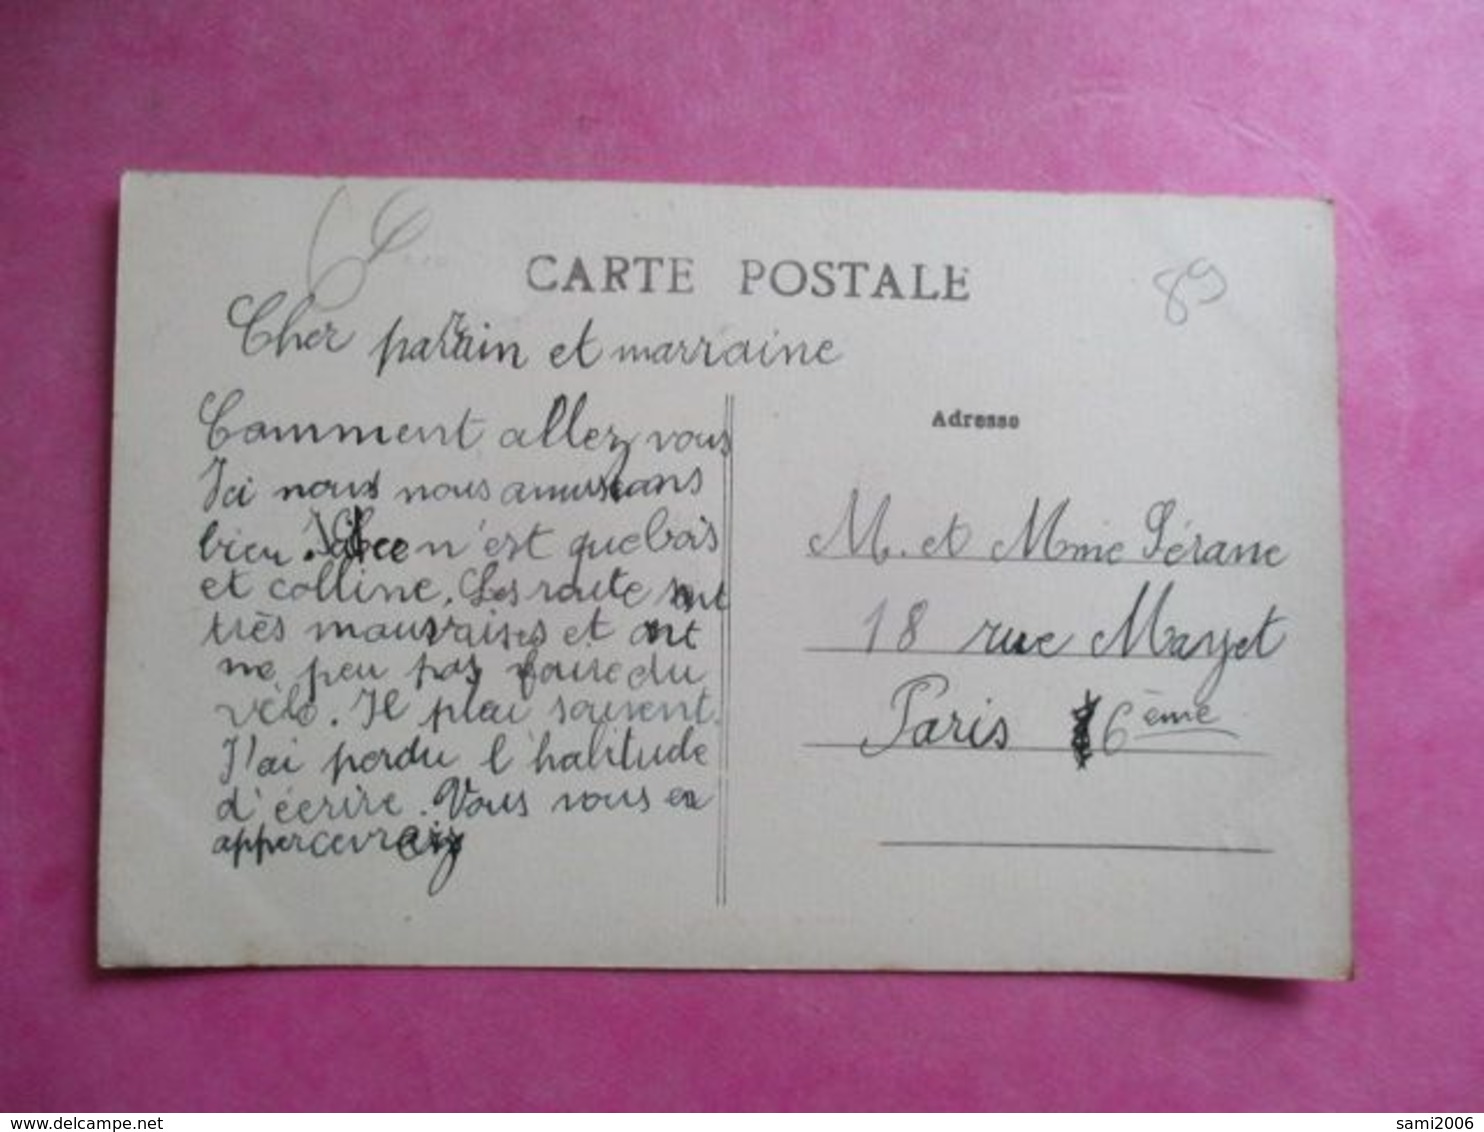 CARTE POSTALE
89
Cher parrain et marraine
Comment allez vous
Ici nous nous amusons
bien. ce n'est que bois
et colline. Les route sont
très mauvaises et ont
ne peu pas faire du
vélo. Il pleu souvent.
J'ai perdu l'habitude
d'écrire. Vous vous en
appercevrez
Adresse
M. et Mme Pérane
18 rue Mayet
Paris 6ème
sami2006